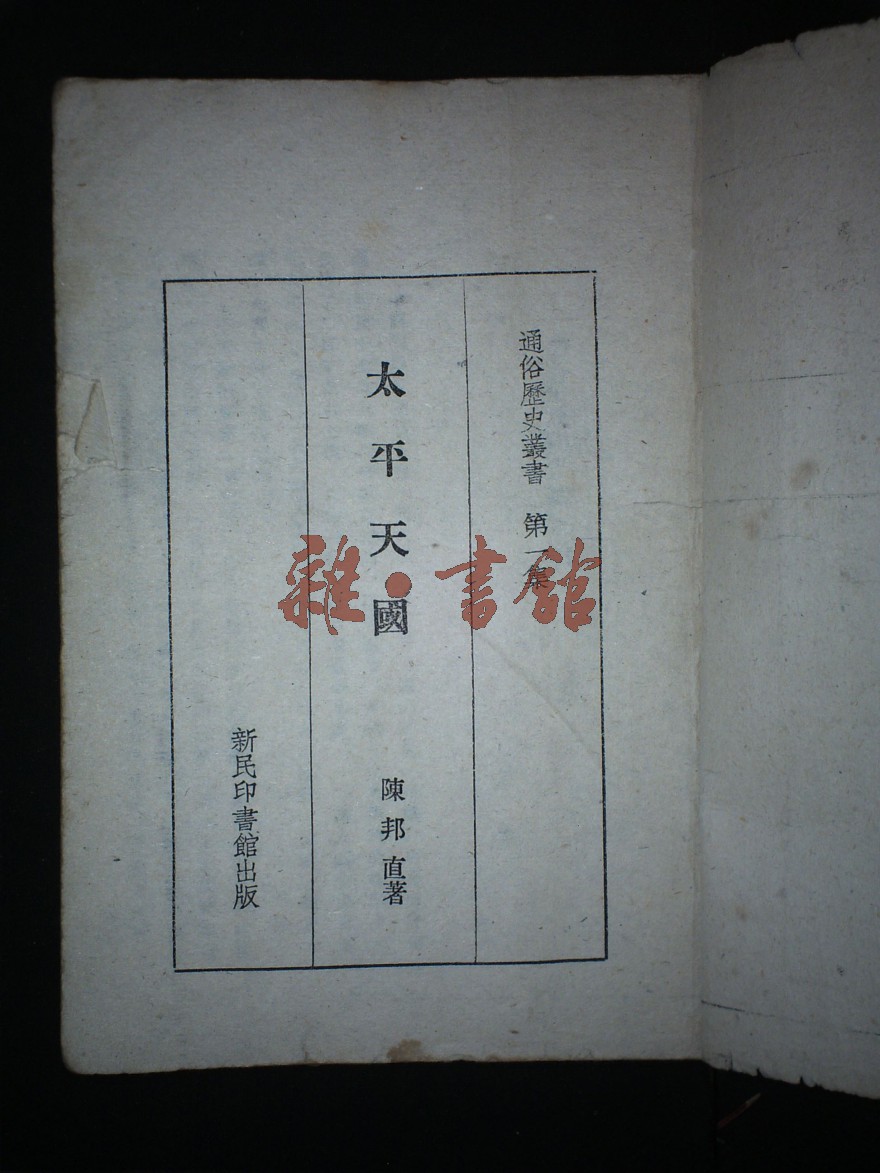 通俗歷史叢書 第一集
太平天國
陳邦直著
新民印書館出版
雜·書館